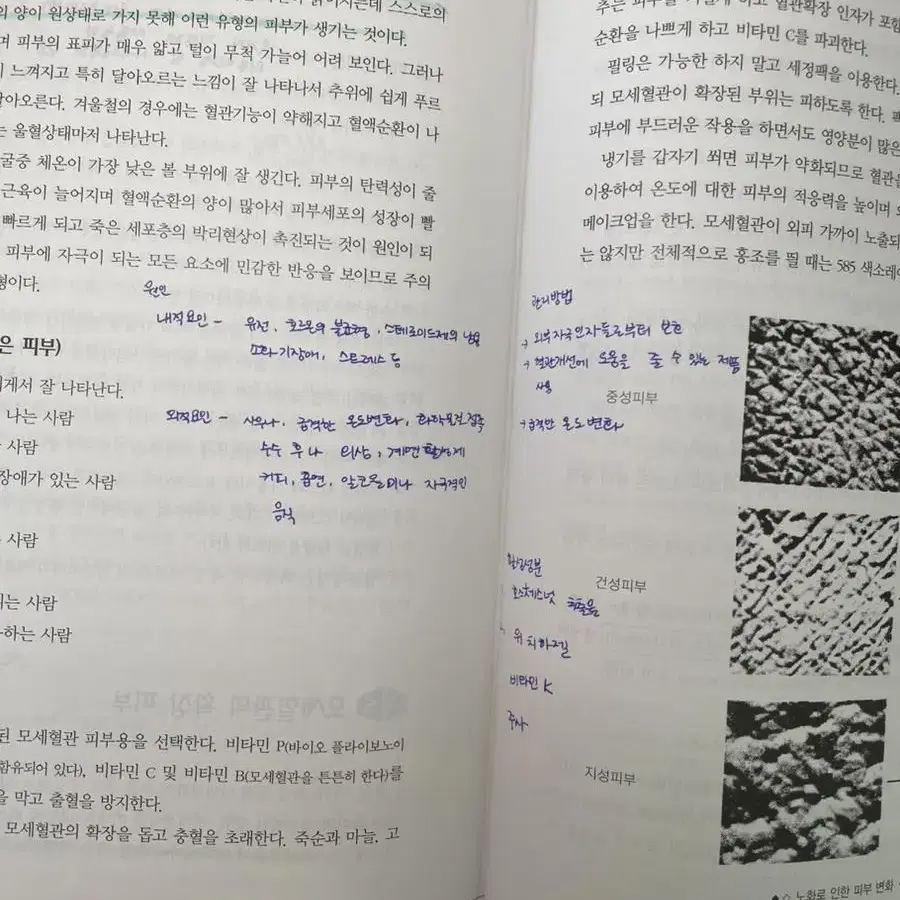 스스로의
의 양이 원상태로 가지 못해 이런 유형의 피부가 생기는 것이다.
며 피부의 표피가 매우 얇고 털이 무척 가늘어 어려 보인다. 그러나
느껴지고 특히 달아오르는 느낌이 잘 나타나서 추위에 쉽게 푸르
달아오른다. 겨울철의 경우에는 혈관기능이 약해지고 혈액순환이 나
는 울혈상태마저 나타난다.
굴중 체온이 가장 낮은 볼 부위에 잘 생긴다. 피부의 탄력성이 줄
근육이 늘어지며 혈액순환의 양이 많아서 피부세포의 성장이 빨
빠르게 되고 죽은 세포층의 박리현상이 촉진되는 것이 원인이 되
피부에 자극이 되는 모든 요소에 민감한 반응을 보이므로 주의
형이다.
원인
내적요인 - 유전, 호르몬의 불균형, 스테로이드제의 남용
소화기장애, 스트레스 등
은 피부)
에게서 잘 나타난다.
나는 사람
외적요인 - 사우나, 급격한 온도변화, 화학물질 접촉
사람
수술 후나 외상, 계면활성제
장애가 있는 사람
커피, 흡연, 알코올이나 자극적인
음식
사람
되는 사람
하는 사람
된 모세혈관 피부용을 선택한다. 비타민 P(바이오 플라이보노이
함유되어 있다), 비타민 C 및 비타민 B(모세혈관을 튼튼히 한다)를
을 막고 출혈을 방지한다.
모세혈관의 확장을 돕고 충혈을 초래한다. 죽순과 마늘, 고
추는 피부를 하고 혈관확장 인자가 포함
순환을 나쁘게 하고 비타민 C를 파괴한다.
필링은 가능한 하지 말고 세정팩을 이용한다.
되 모세혈관이 확장된 부위는 피하도록 한다.
피부에 부드러운 작용을 하면서도 영양분이 많은
냉기를 갑자기 쐬면 피부가 약화되므로 혈관을
이용하여 온도에 대한 피부의 적응력을 높이며
메이크업을 한다. 모세혈관이 외피 가까이 노출되
는 않지만 전체적으로 홍조를 띌 때는 585 색소레이
관리방법
→ 외부자극인자들로부터 보호
→ 혈관개선에 도움을 줄 수 있는 제품
사용
중성피부
→ 급격한 온도변화
건성피부
추출물
위치하젤
비타민 K
주사
지성피부
노화로 인한 피부 변화